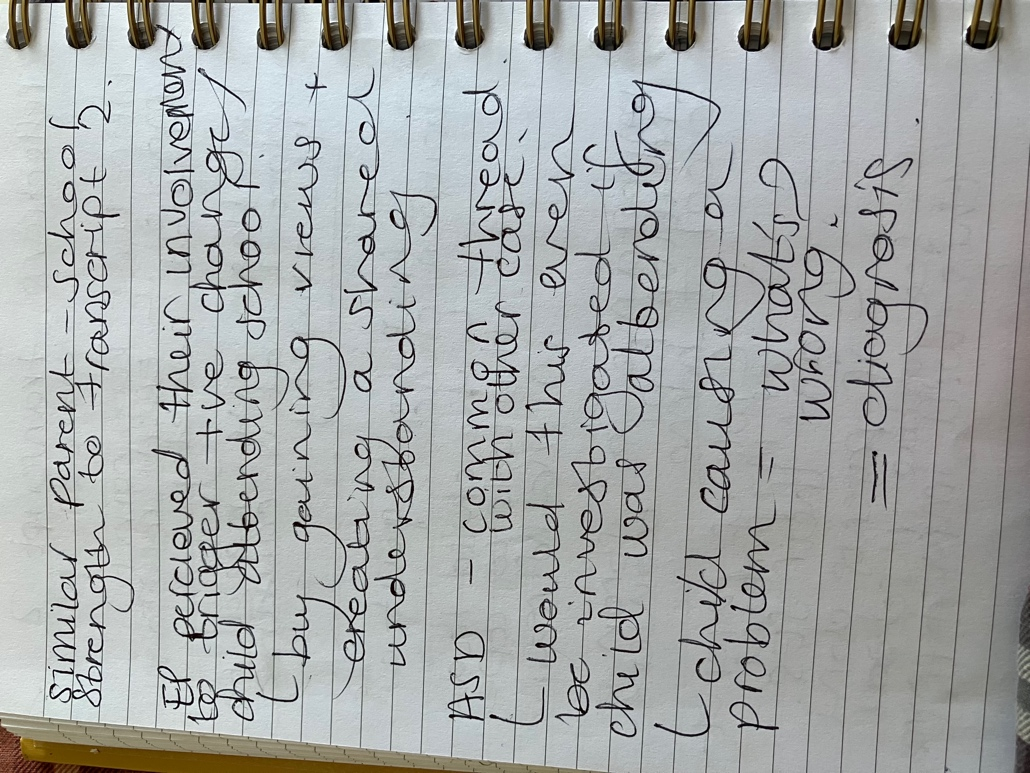 Similar parent-school
strength to transcript 2.
EP percieved their involvement
to trigger +ve change/
child attending school.
by gaining views +
creating a shared
understanding
ASD - common thread
with other case.
would this even
be investigated if
child was attending
child causing a
problem = what's
wrong.
= diagnosis.